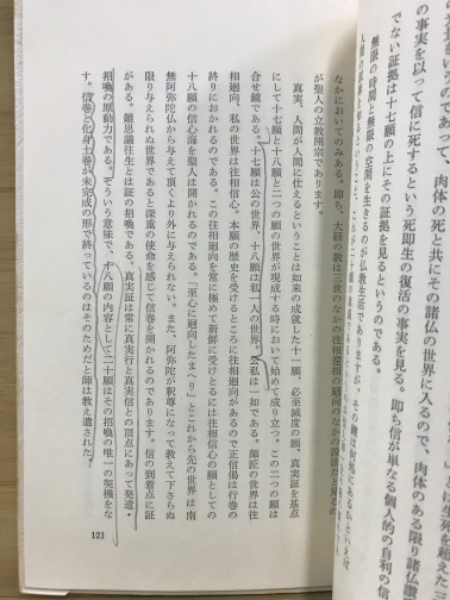 の世界をいうのであって、肉体の死と共にその諸仏の世界に入るので、肉体のある限り諸仏讃
の事実を以って信に死するという死即生の復活の事実を見る。即ち信が単なる個人的自利の信
でない証拠は十七願の上にその証拠を見るというのである。
無限の時間と無限の空間を生きるのが仏教生活でありますが、その鍵は何処にあるかといえば
なかにおいてのみある。即ち、大経の教は三世のなかの往相還相の廻向のなかの
が聖人の立教開宗であります。
真実、人間が人間に仕えるということは如来の成就した十一願、必至滅度の願、真実証を基点
にして十七願と十八願と二つの願の世界が現成する時において始めて成り立つ。この二つの願は
合せ鏡である。十七願は公の世界、十八願は私一人の世界。公私は一如である。師匠の世界は往
相廻向、私の世界は往相信心。本願の歴史を受けるところに往相廻向があるので正信偈は行巻の
終りにおかれるのである。この往相廻向を常に極めて新鮮に受けとるには往相信心の願としての
十八願の信心海を聖人は開かれるのである。「至心に廻向したまへり」とこれから先の世界は南
無阿弥陀仏から与えて頂くより外に与えられない。また、阿弥陀が釈尊になって教えて下さらぬ
限り与えられぬ世界であると深重の使命を感じて信巻を開かれるのであります。信の到着点に証
がある。難思議往生とは証の招喚である。真実証は常に真実行と真実信との頂点にあって発遣・
招喚の原動力である。そういう意味で、十八願の内容として二十願はその招喚の唯一の契機をな
す。信巻と化身土巻が未完成の形で終っているのはそのためだと師は教え遺された。
121